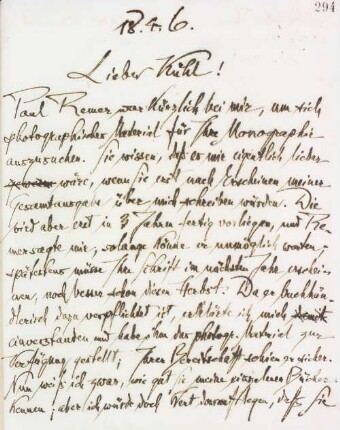 294
18.4.6.
Lieber Kühl!
Paul Remer war kürzlich bei mir, um sich
photographisches Material für Ihre Monographie
auszusuchen. Sie wissen, daß es mir eigentlich lieber
wäre, wenn Sie erst nach Erscheinen meiner
Gesamtausgabe über mich schreiben würden. Die
wird aber erst in 3 Jahren fertig vorliegen, und Re-
mer sagte mir, solange könne er unmöglich warten;
spätestens müsse Ihre Schrift im nächsten Jahr erschei-
nen, noch besser schon diesen Herbst. Da er buchhänd-
lerisch dazu verpflichtet ist, erklärte ich mich damit
einverstanden und habe ihm das photogr. Material zur
Verfügung gestellt; Ihrer Bereitschaft schien er sicher.
Nun weiß ich zwar, wie gut Sie meine einzelnen Bücher
kennen; aber ich würde doch Wert darauf legen, daß Sie